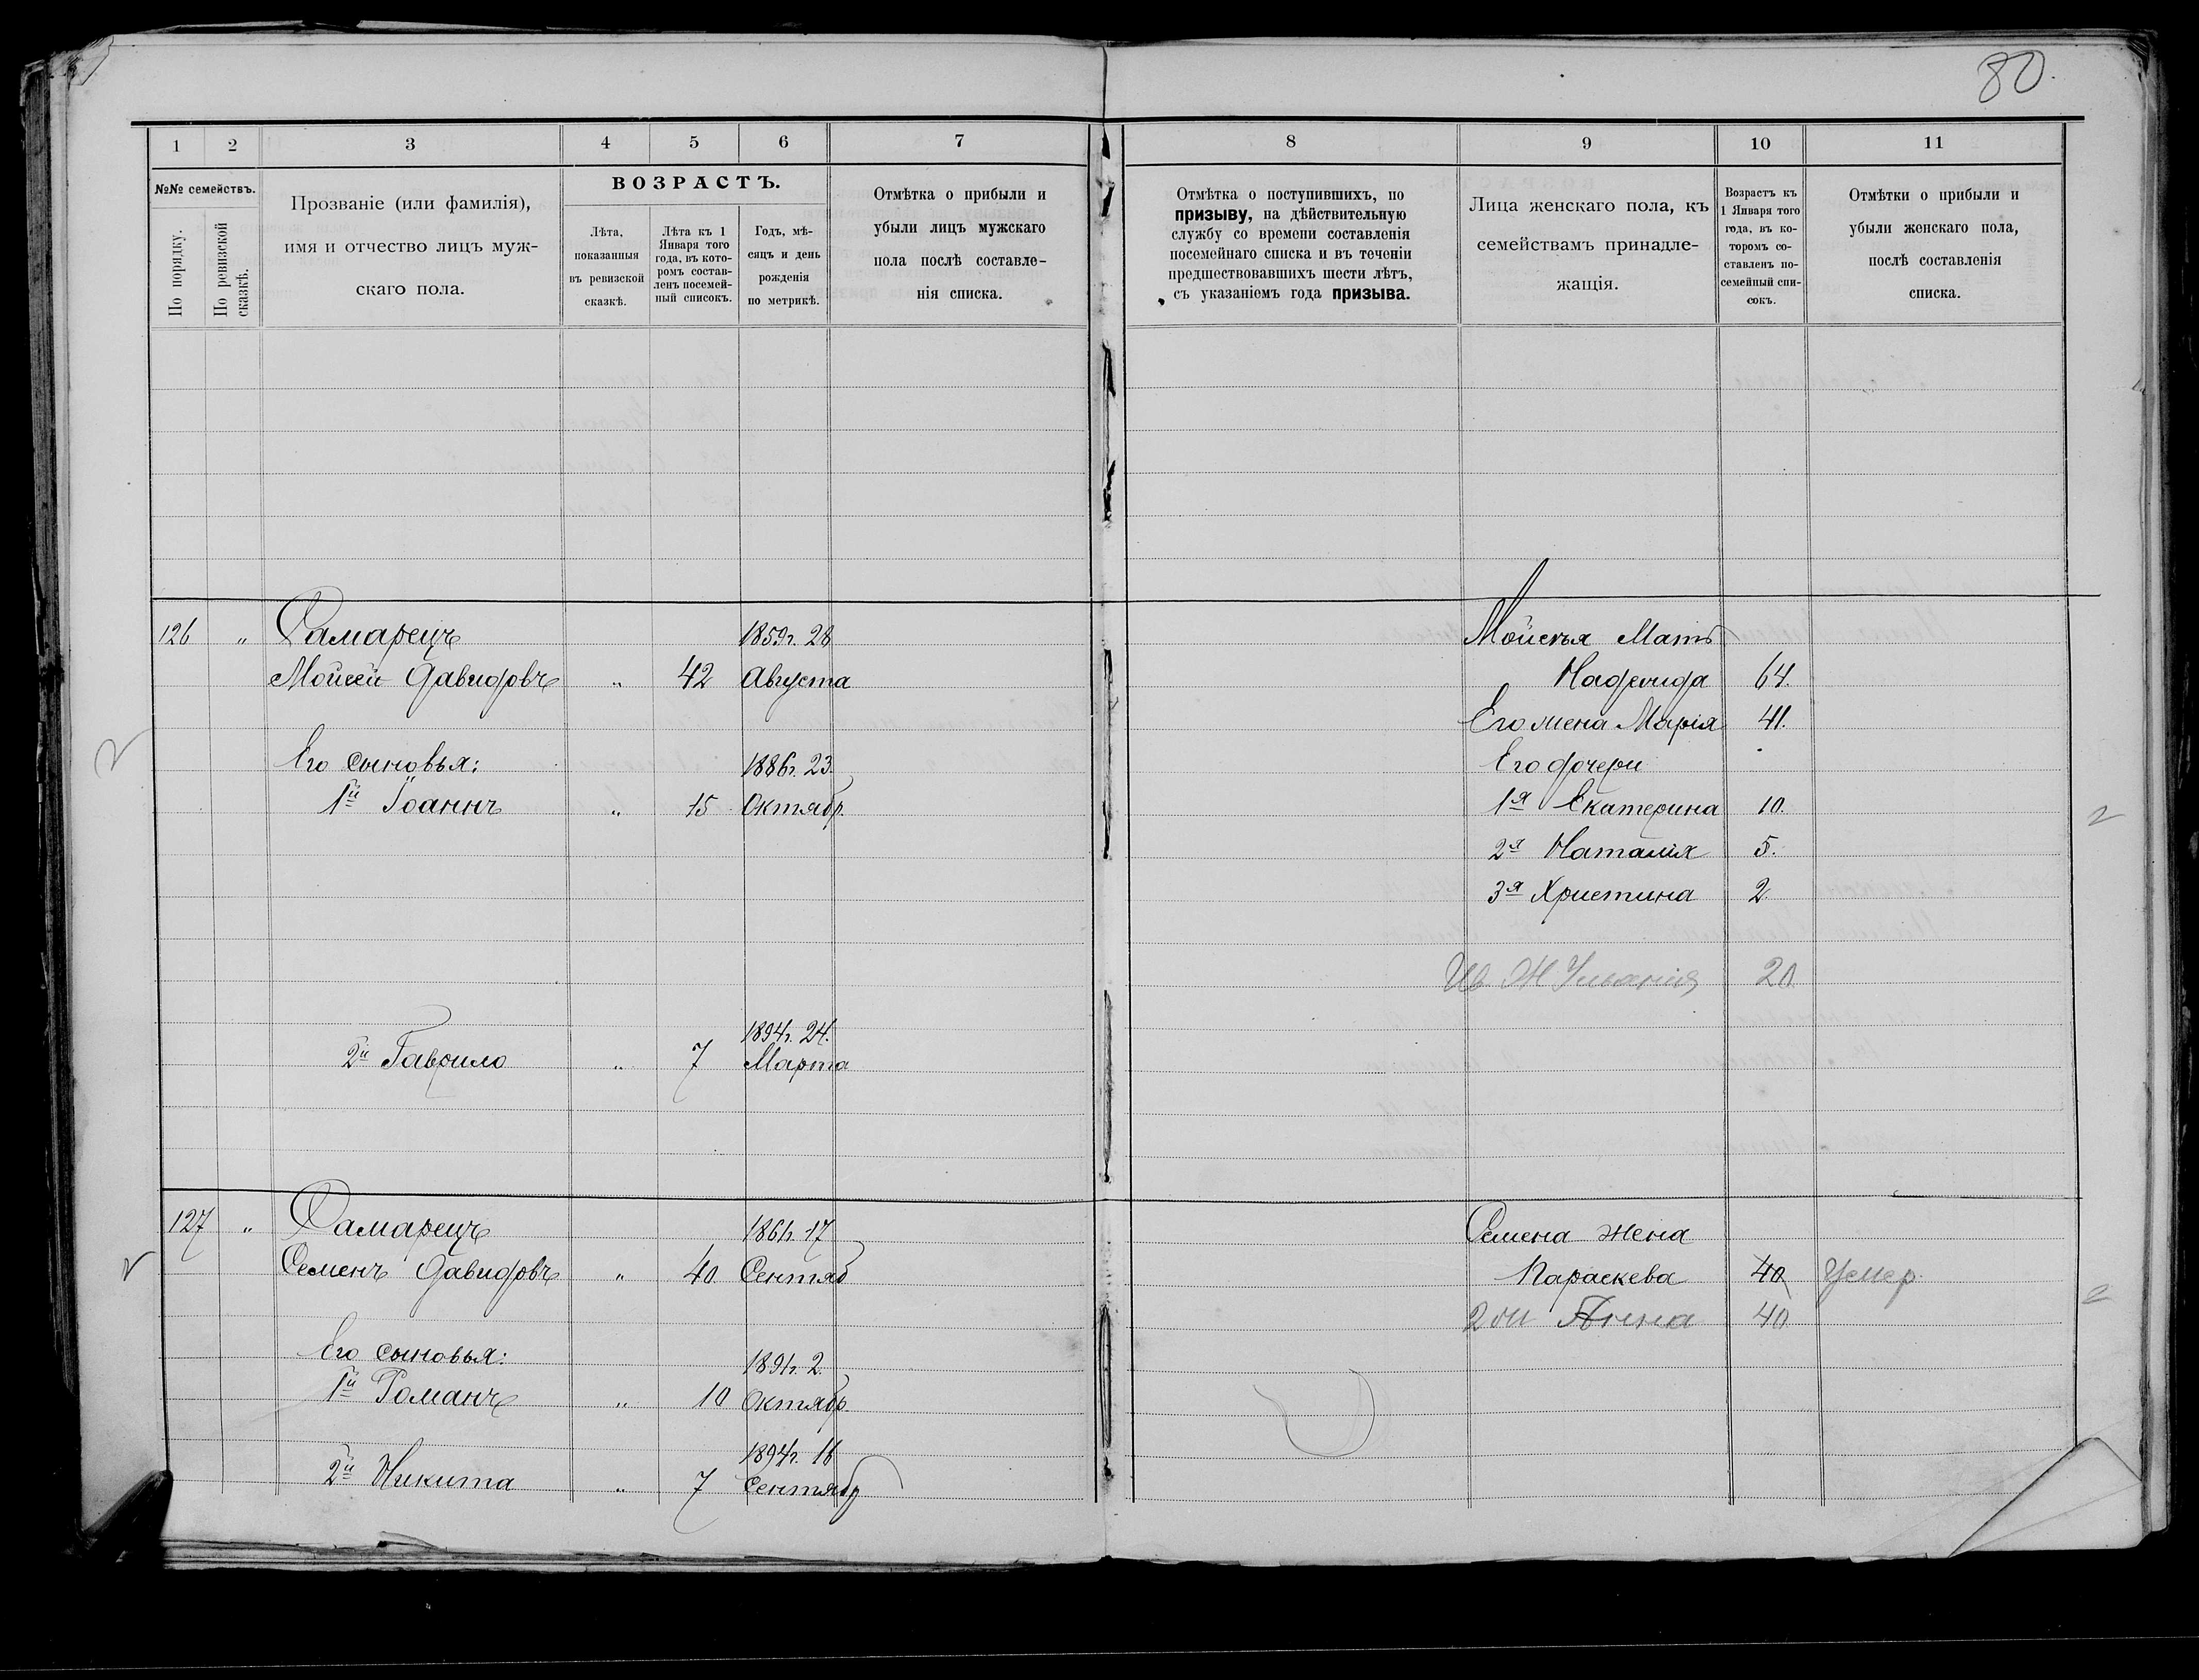 80.
1 2 3 4 5 6 7 8 9 10 11
№№ семействъ.
По порядку.
По ревизской сказкѣ.
Прозваніе (или фамилія),
имя и отчество лицъ муж-
скаго пола.
ВОЗРАСТЪ.
Лѣта,
показанныя
въ ревизской
сказкѣ.
Лѣта къ 1
Января того
года, въ кото-
ромъ состав-
ленъ посемей-
ный списокъ.
Годъ, мѣ-
сяцъ и день
рожденія
по метрикѣ.
Отмѣтка о прибыли и
убыли лицъ мужскаго
пола послѣ составле-
нія списка.
Отмѣтка о поступившихъ, по
призыву, на дѣйствительную
службу со времени составленія
посемейнаго списка и въ теченіи
предшествовавшихъ шести лѣтъ,
съ указаніемъ года призыва.
Лица женскаго пола, къ
семействамъ принадле-
жащія.
Возрастъ къ
1 Января того
года, въ ко-
торомъ со-
ставленъ по-
семейный спи-
сокъ.
Отмѣтки о прибыли и
убыли женскаго пола,
послѣ составленія
списка.
126 " Самарецъ 1859г. 28
Мойсей Давидовъ " 42 Августа
Его сыновья: 1886г. 23.
1й Іоаннъ " 15 Октябр.
2й Гаврило " 7 1894г. 24.
Марта
Мойсея Мать
64.
Его жена Марія 41.
Его дочери
1я Екатерина 10.
2я Наталія 5.
3я Христина 2.
Ив. Ж Ульянія 20.
127 " Самарецъ 1861г. 17
Семенъ Давидовъ " 40 Сентяб
Его сыновья: 1891г. 2.
1й Романъ " 10 Октябр.
1894г. 16
2й Никита " 7 Сентябр
Семена жена
Параскева 40 Умер.
Анна 40